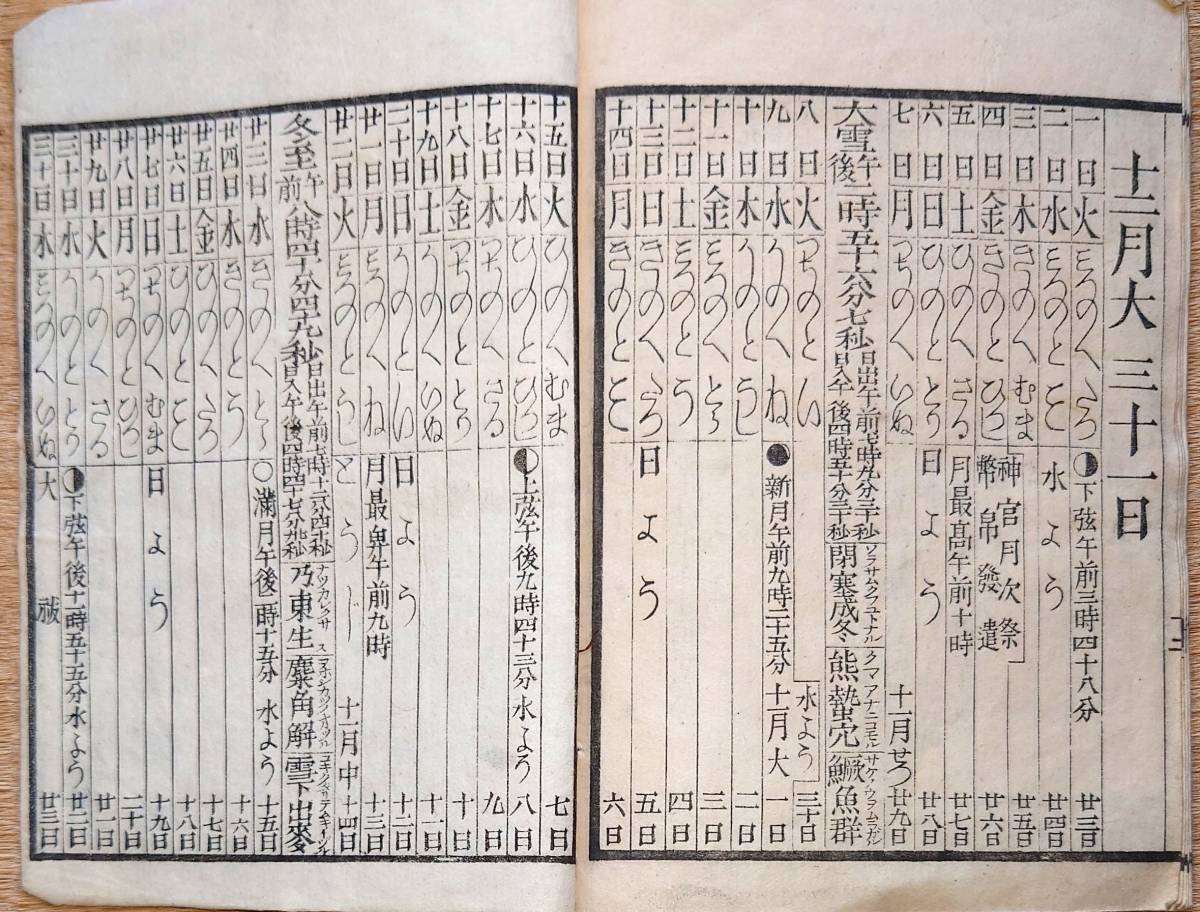 十二月大 三十一日
一日 火 みづのへ たつ 下弦午前三時四十八分 廿三日
二日 水 みづのと み 水よう 廿四日
三日 木 きのへ むま 神宮月次祭 廿五日
四日 金 きのと ひつじ 幣帛發遣 廿六日
五日 土 ひのへ さる 月最高午前十時 廿七日
六日 日 ひのと とり 日よう 廿八日
七日 月 つちのへ いぬ 十一月せつ 廿九日
大雪 午後二時五十六分七秒 日出午前七時九分三十秒 日入午後四時五十分三十秒 閉塞成冬 ソラサムクフユトナル 熊蟄穴 クマアナニコモル 鱖魚群 サケノウヲムラガル
八日 火 つちのと い 水よう 三十日
九日 水 かのへ ね 新月午前九時二十五分 十一月大 一日
十日 木 かのと うし 二日
十一日 金 みづのへ とら 三日
十二日 土 みづのと う 四日
十三日 日 きのへ たつ 日よう 五日
十四日 月 きのと み 六日
十五日 火 ひのへ むま 七日
十六日 水 ひのと ひつじ 上弦午後九時四十三分 水よう 八日
十七日 木 つちのへ さる 九日
十八日 金 つちのと とり 十日
十九日 土 かのへ いぬ 十一日
二十日 日 かのと い 日よう 十二日
廿一日 月 みづのへ ね 月最卑午前九時 十三日
廿二日 火 みづのと うし とうじ 十一月中 十四日
冬至 午前八時四十分四十九秒 乃東生 麋角解 雪下出麥
廿三日 水 きのへ とら 滿月午後 水よう 十五日
廿四日 木 きのと う 十六日
廿五日 金 ひのへ たつ 十七日
廿六日 土 ひのと み 十八日
廿七日 日 つちのへ むま 日よう 十九日
廿八日 月 つちのと ひつじ 二十日
廿九日 火 かのへ さる 廿一日
三十日 水 かのと とり 下弦午後十一時五十五分 水よう 廿二日
三十一日 木 みづのへ いぬ 大祓 廿三日